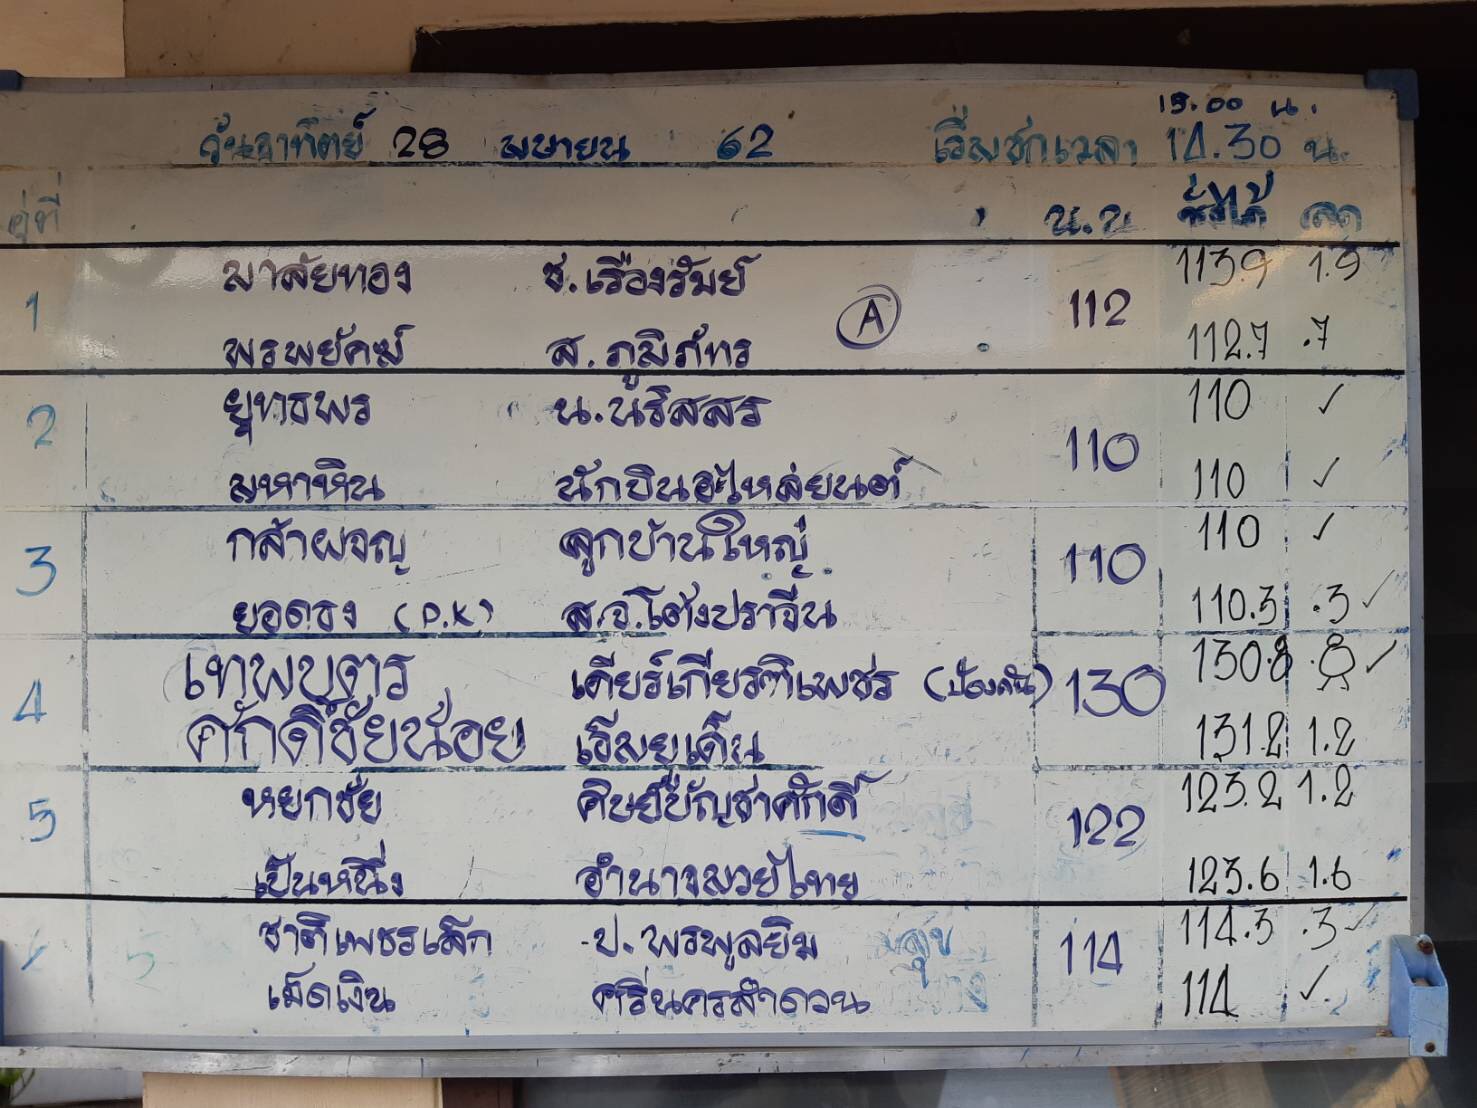 15.00 น.
วันอาทิตย์ 28 เมษายน 62 เริ่มชกเวลา 14.30 น.
คู่ที่ น.น ชั่งได้ ลด
มาลัยทอง ช.เรืองรัมย์ 113.9 1.9
1 A 112
พรพยัคฆ์ ส.ภูมิภัทร 112.7 .7
ยุทธพร น.นริสสร 110 ✓
2 110
มหาหิน นักบินอะไหล่ยนต์ 110 ✓
กล้าผจญ ลูกบ้านใหญ่ 110 ✓
3 110
ยอดธง (P.K) ส.จ.โต้งปราจีน 110.3 .3 ✓
เทพบุตร เดียร์เกียรติเพชร 130.8 .8 ✓
4 130
ศักดิ์ชัยน้อย เอ็มยูเด็น 131.2 1.2
หยกชัย ศิษย์บัญชาศักดิ์ 123.2 1.2
5 122
เป็นหนึ่ง อำนาจมวยไทย 123.6 1.6
ชาติเพชรเล็ก ป.พรพูลยิม 114.3 .3 ✓
114
เม็ดเงิน ศรีนครลำดวน 114 ✓